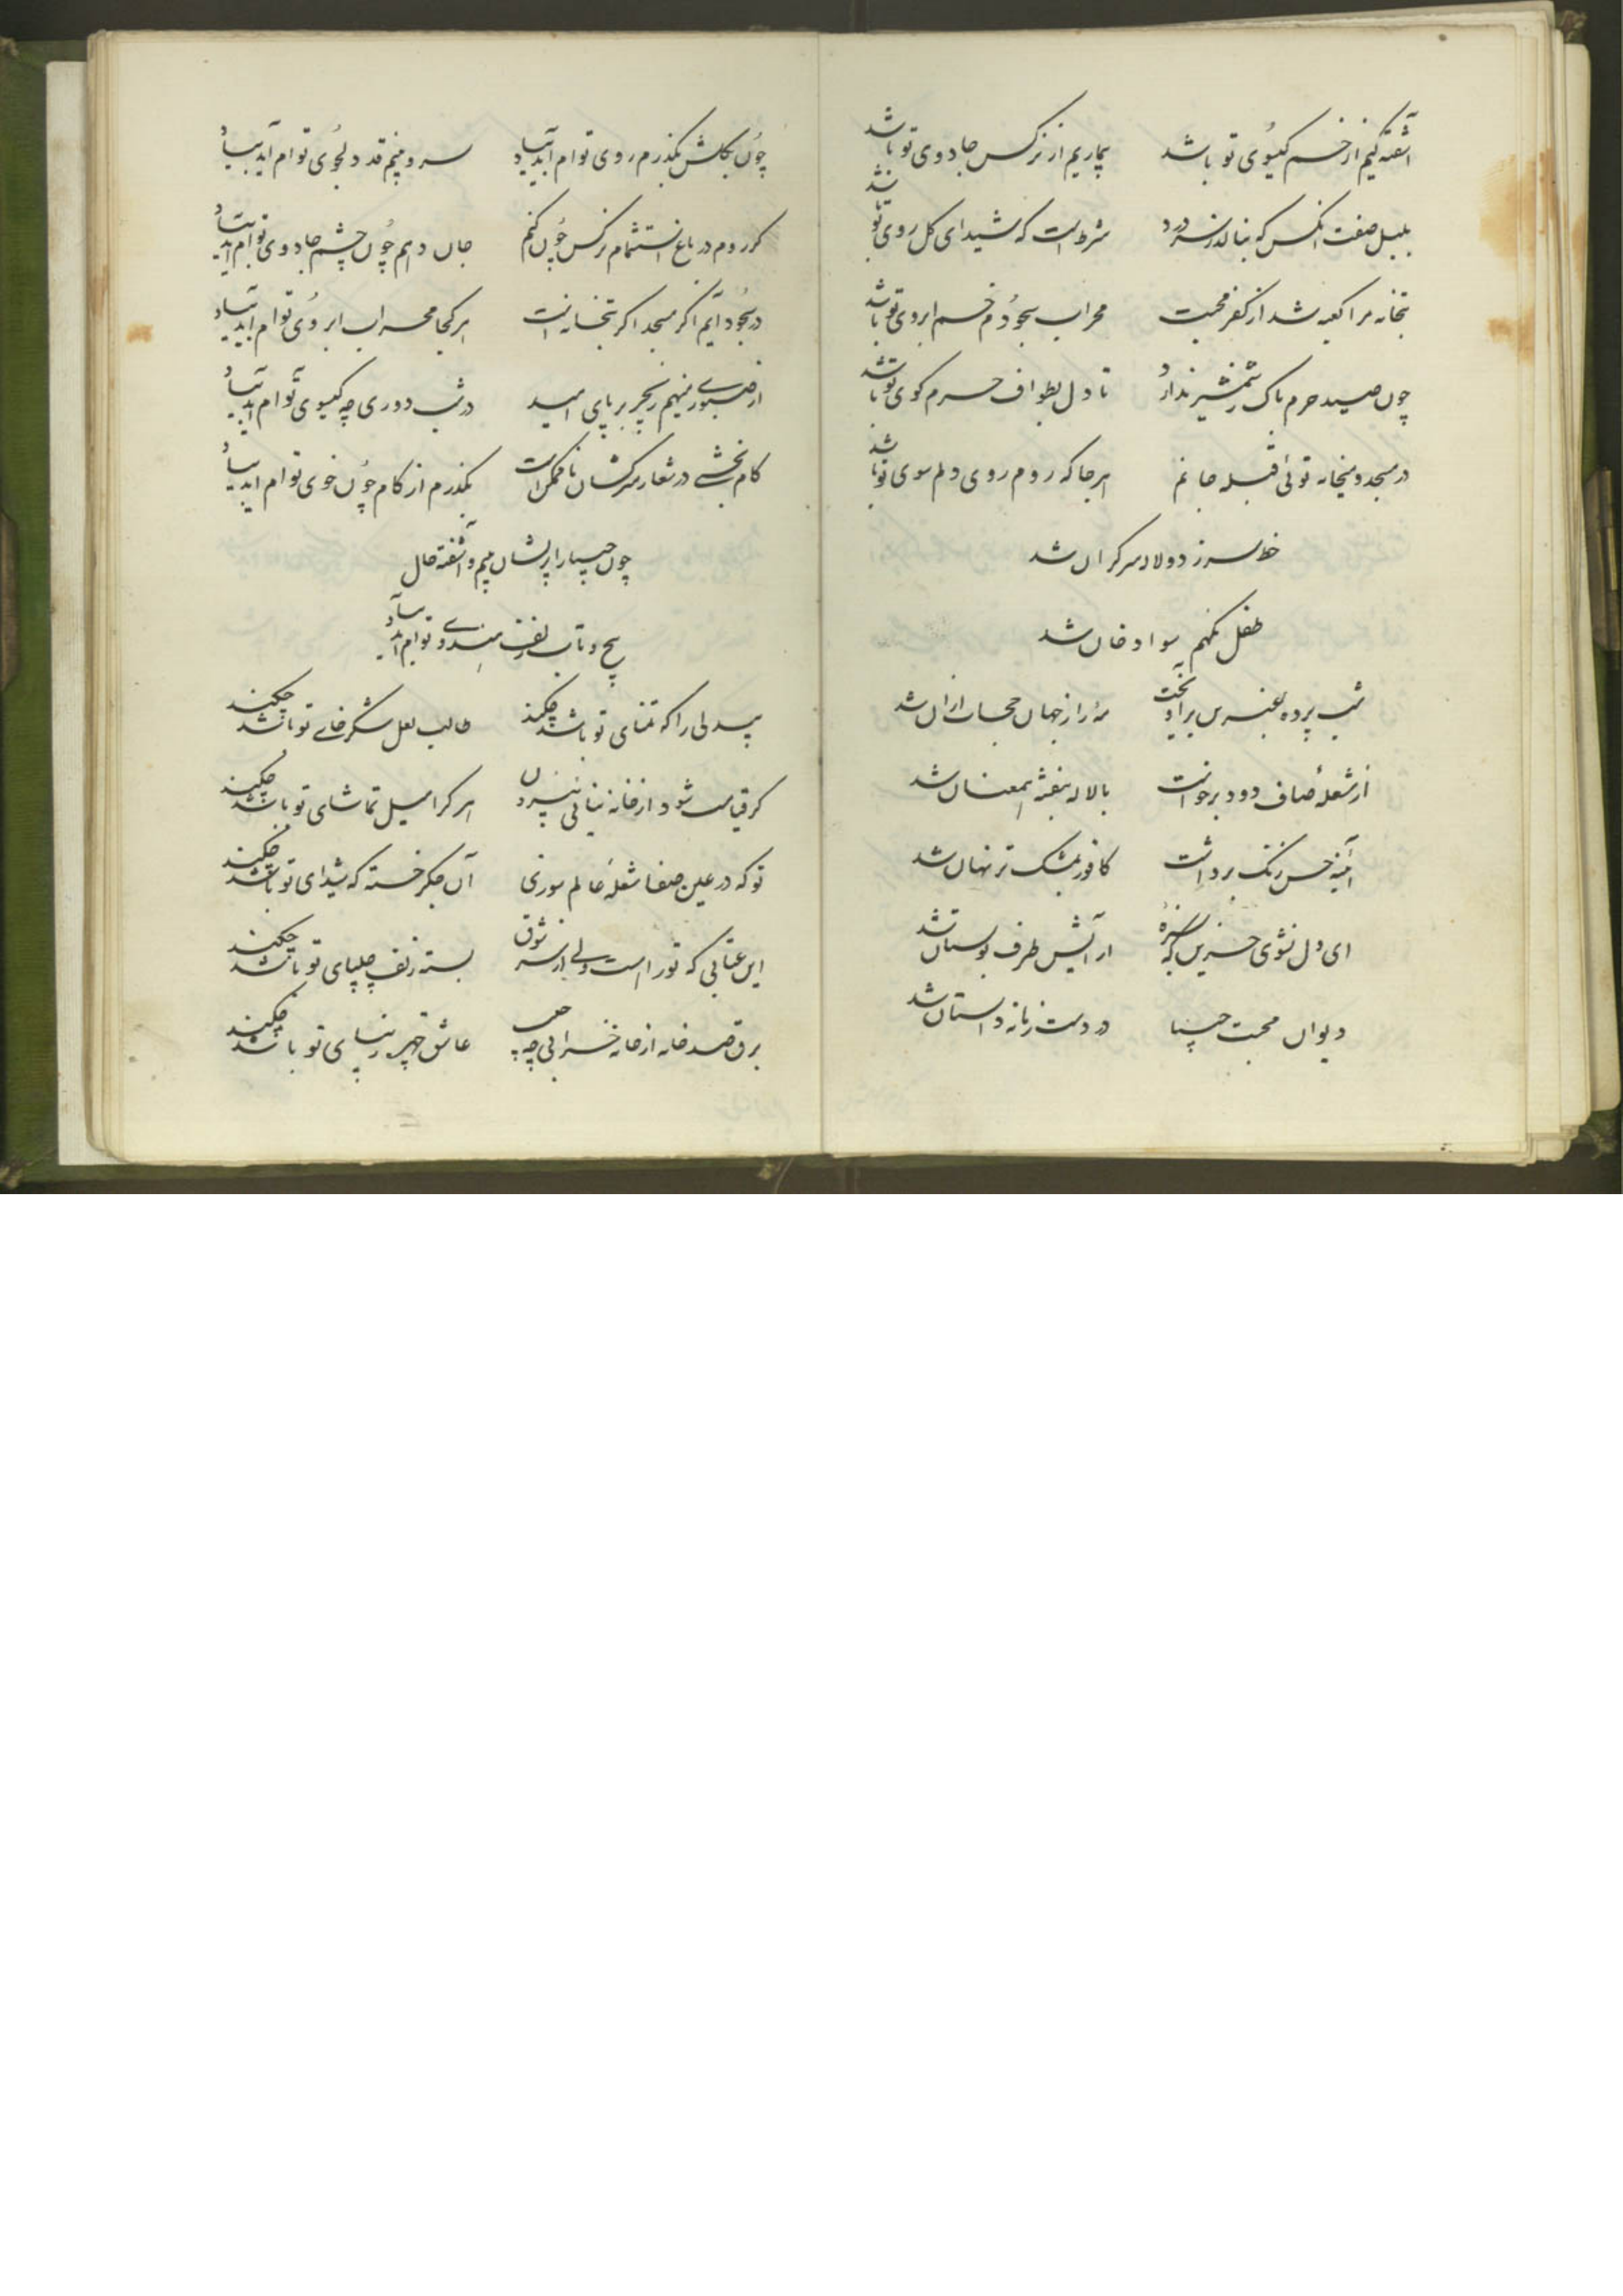 آشفتگیم از خم گیسوی تو باشد بیماریم از نرگس جادوی تو باشد
بلبل صفت آنکس که ننالد ز سر درد شرط است که شیدای گل روی تو باشد
بتخانه مرا کعبه شد از کفر محبت محراب سجودم خم ابروی تو باشد
چون صید حرم باک ز شمشیر ندارد تا دل بطواف حرم کوی تو باشد
در مسجد و میخانه توئی قبله جانم هر جا که روم روی دلم سوی تو باشد
خط سرزد و سرگران شد
طفل نگهم سواد خان شد
شب پرده عنبرین برآویخت مه را ز جهان حجاب ازان شد
از شعله صاف دود برخواست با لاله بنفشه همعنان شد
آئینه حسن زنگ برداشت کافور بمشک تر نهان شد
ای دل نشوی حزین که سبزه آرایش طرف بوستان شد
دیوان محبت چنینا در دست زمانه داستان شد
چون بگلشن بگذرم روی توام آید بیاد سرو بینم قد دلجوی توام آید بیاد
گر روم در باغ استشمام نرگس چون کنم جان دهم چون چشم جادوی توام آید بیاد
در سجود آیم اگر مسجد اگر بتخانه است هر کجا محراب ابروی توام آید بیاد
از صبوری مینهم زنجیر بر پای امید در شب دوری چه گیسوی توام آید بیاد
کام بخشی در شعار سرکشان ناممکن است بگذرم از کام چون خوی توام آید بیاد
چون را پریشان بینم و آشفته حال
پیچ و تاب زلف هندوی توام آید بیاد
بیدلی را که تمنای تو باشد چکند طالب لعل شکرخای تو باشد چکند
گر قیامت شود از خانه نیائی بیرون هر کرا میل تماشای تو باشد چکند
تو که در عین صفا شعله عالم سوزی آن جگر خسته که شیدای تو باشد چکند
این عتابی که تو راست ولی از سر شوق بسته زلف چلیپای تو باشد چکند
برق صد خانه از خانه خرابی چه عاشق چهر زیبای تو باشد چکند